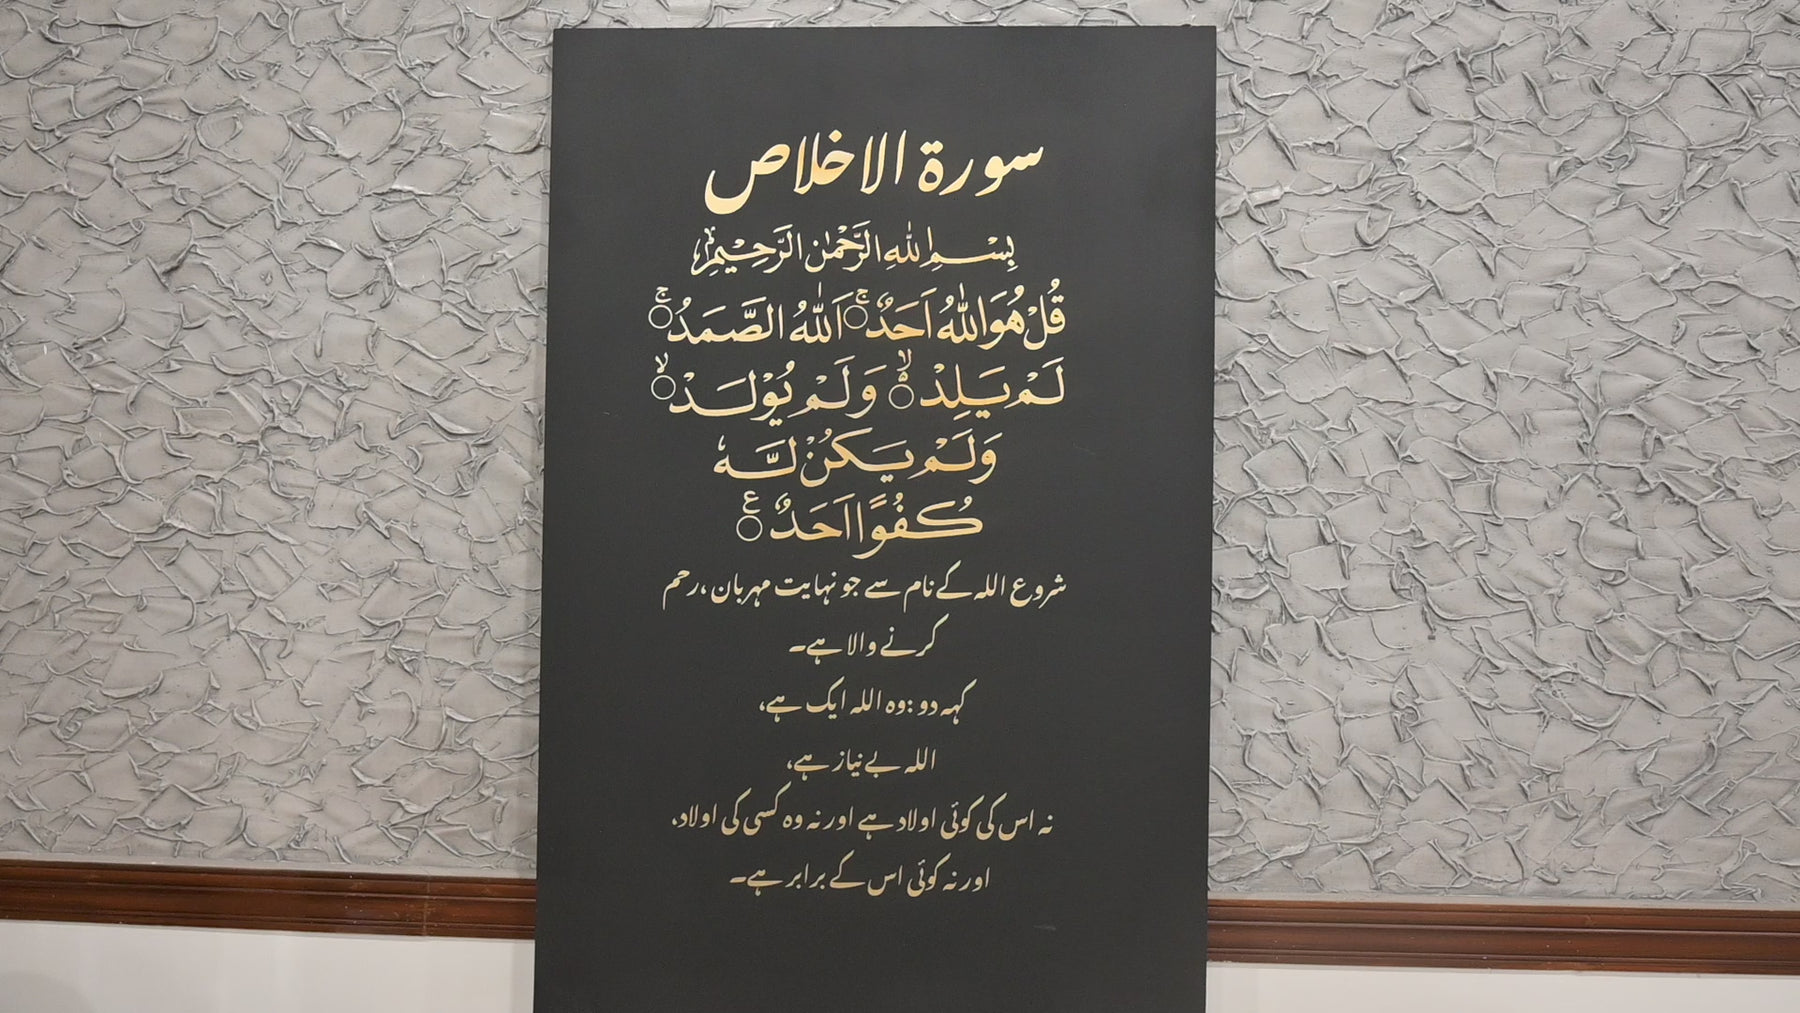 سورة الاخلاص
بِسْمِ اللهِ الرَّحْمٰنِ الرَّحِيْمِ
قُلْ هُوَ اللّٰهُ اَحَدٌ ۚ اَللّٰهُ الصَّمَدُ ۚ
لَمْ يَلِدْ ۙ۬ وَلَمْ يُوْلَدْ ۙ
وَلَمْ يَكُنْ لَّهٗ
كُفُوًا اَحَدٌ ۧ
شروع اللہ کے نام سے جو نہایت مہربان ،رحم
کرنے والا ہے۔
کہہ دو :وہ اللہ ایک ہے،
اللہ بے نیاز ہے،
نہ اس کی کوئی اولاد ہے اور نہ وہ کسی کی اولاد،
اور نہ کوئی اس کے برابر ہے۔